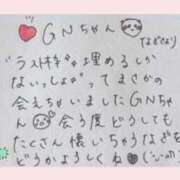 ♡GNちゃん
なぎさより
"ラスト枠"が埋めるしか
ないっしょッ"ってまさかの
会えちゃいましたGNちゃ
ん 会う度どうしても
たくさん懐いちゃうなぎを
どうかよろしくね♡